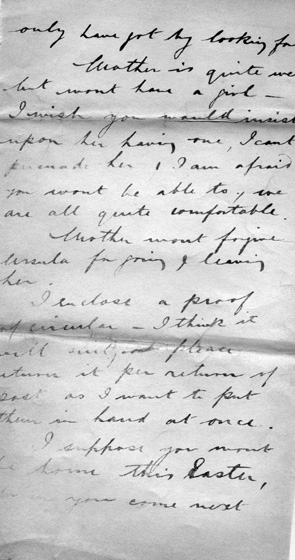 only have got by looking for
Mother is quite we
but wont have a girl —
I wish you would insist
upon her having one, I cant
persuade her & I am afraid
you wont be able to, we
are all quite comfortable.
Mother wont forgive
Ursula for going & leaving
her.
I enclose a proof
of circular — I think it
will please
return it per return of
post as I want to put
them in hand at once.
I suppose you wont
be home this Easter,
you come next